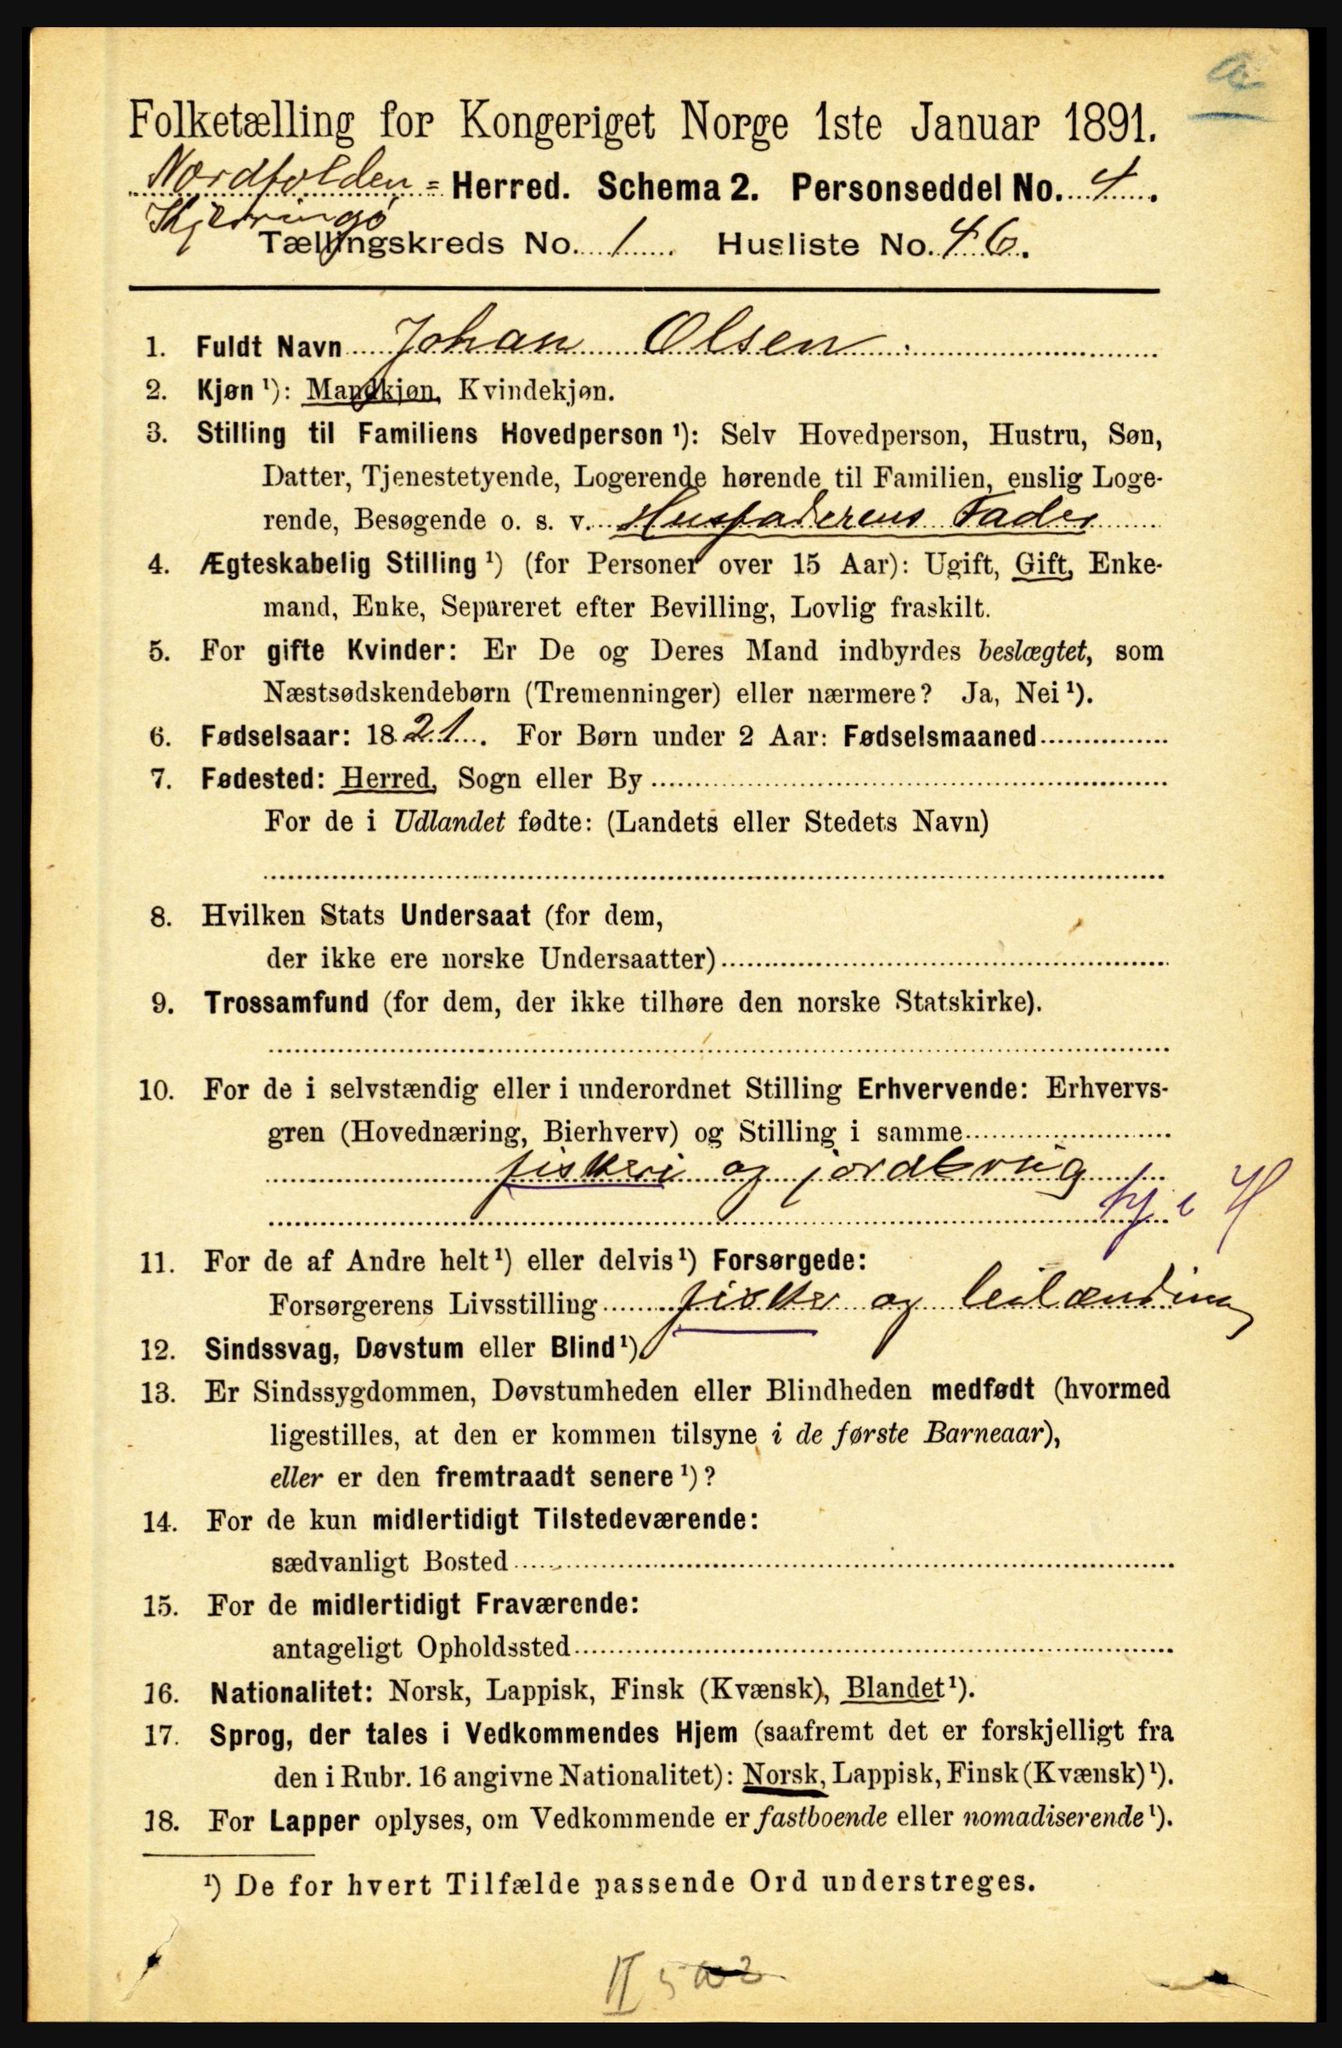 a
Folketælling for Kongeriget Norge 1ste Januar 1891.
Nordfolden - Herred. Schema 2. Personseddel No. 4.
Kjerringø
Tællingskreds No. 1. Husliste No. 46.
1. Fuldt Navn Johan Olsen
2. Kjøn ¹): Mandkjøn, Kvindekjøn.
3. Stilling til Familiens Hovedperson ¹): Selv Hovedperson, Hustru, Søn,
Datter, Tjenestetyende, Logerende hørende til Familien, enslig Loge-
rende, Besøgende o. s. v. Husfaderens Fader
4. Ægteskabelig Stilling ¹) (for Personer over 15 Aar): Ugift, Gift, Enke-
mand, Enke, Separeret efter Bevilling, Lovlig fraskilt.
5. For gifte Kvinder: Er De og Deres Mand indbyrdes beslægtet, som
Næstsødskendebørn (Tremenninger) eller nærmere? Ja, Nei ¹).
6. Fødselsaar: 1821. For Børn under 2 Aar: Fødselsmaaned
7. Fødested: Herred, Sogn eller By
For de i Udlandet fødte: (Landets eller Stedets Navn)
8. Hvilken Stats Undersaat (for dem,
der ikke ere norske Undersaatter)
9. Trossamfund (for dem, der ikke tilhøre den norske Statskirke).
10. For de i selvstændig eller i underordnet Stilling Erhvervende: Erhvervs-
gren (Hovednæring, Bierhverv) og Stilling i samme
fiskeri og jordbrug
11. For de af Andre helt ¹) eller delvis ¹) Forsørgede:
Forsørgerens Livsstilling fisker og leilænding
12. Sindssvag, Døvstum eller Blind ¹)
13. Er Sindssygdommen, Døvstumheden eller Blindheden medfødt (hvormed
ligestilles, at den er kommen tilsyne i de første Barneaar),
eller er den fremtraadt senere ¹)?
14. For de kun midlertidigt Tilstedeværende:
sædvanligt Bosted
15. For de midlertidigt Fraværende:
antageligt Opholdssted
16. Nationalitet: Norsk, Lappisk, Finsk (Kvænsk), Blandet ¹).
17. Sprog, der tales i Vedkommendes Hjem (saafremt det er forskjelligt fra
den i Rubr. 16 angivne Nationalitet): Norsk, Lappisk, Finsk (Kvænsk) ¹).
18. For Lapper oplyses, om Vedkommende er fastboende eller nomadiserende ¹).
¹) De for hvert Tilfælde passende Ord understreges.
II